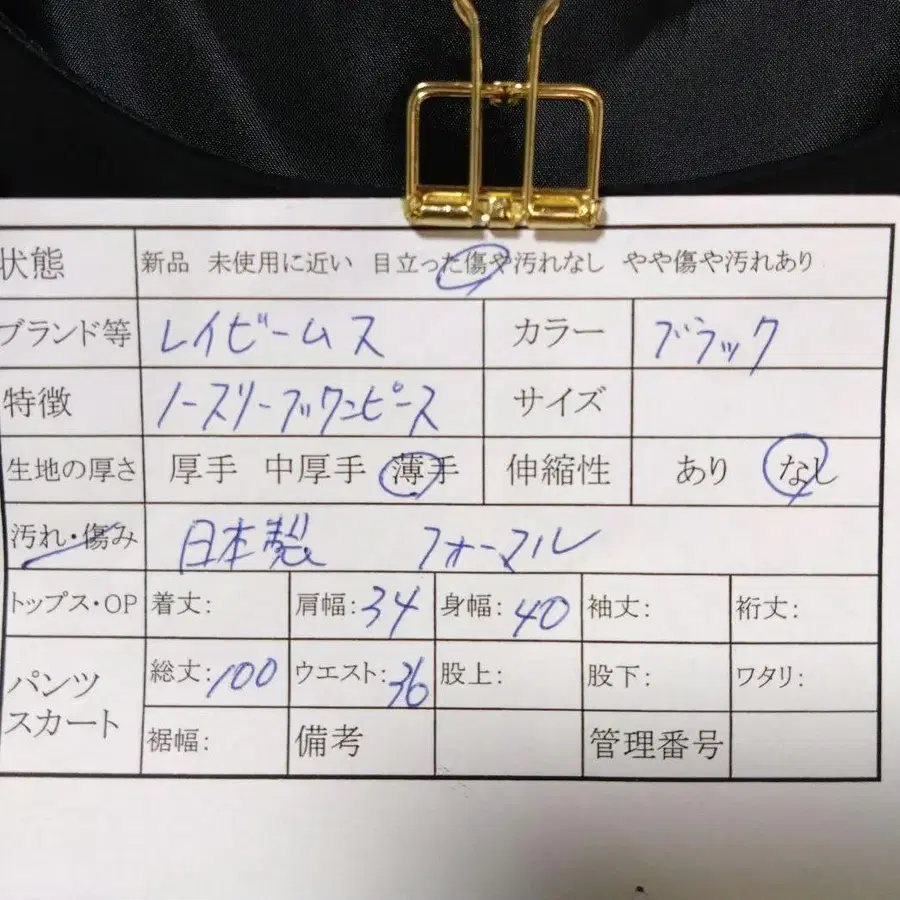 状態 新品 未使用に近い 目立った傷や汚れなし やや傷や汚れあり
ブランド等 レイビームス カラー ブラック
特徴 ノースリーブワンピース サイズ
生地の厚さ 厚手 中厚手 薄手 伸縮性 あり なし
汚れ・傷み 日本製 フォーマル
トップス・OP 着丈: 肩幅:34 身幅:40 袖丈: 裄丈:
パンツ スカート 総丈:100 ウエスト:36 股上: 股下: ワタリ:
裾幅: 備考 管理番号